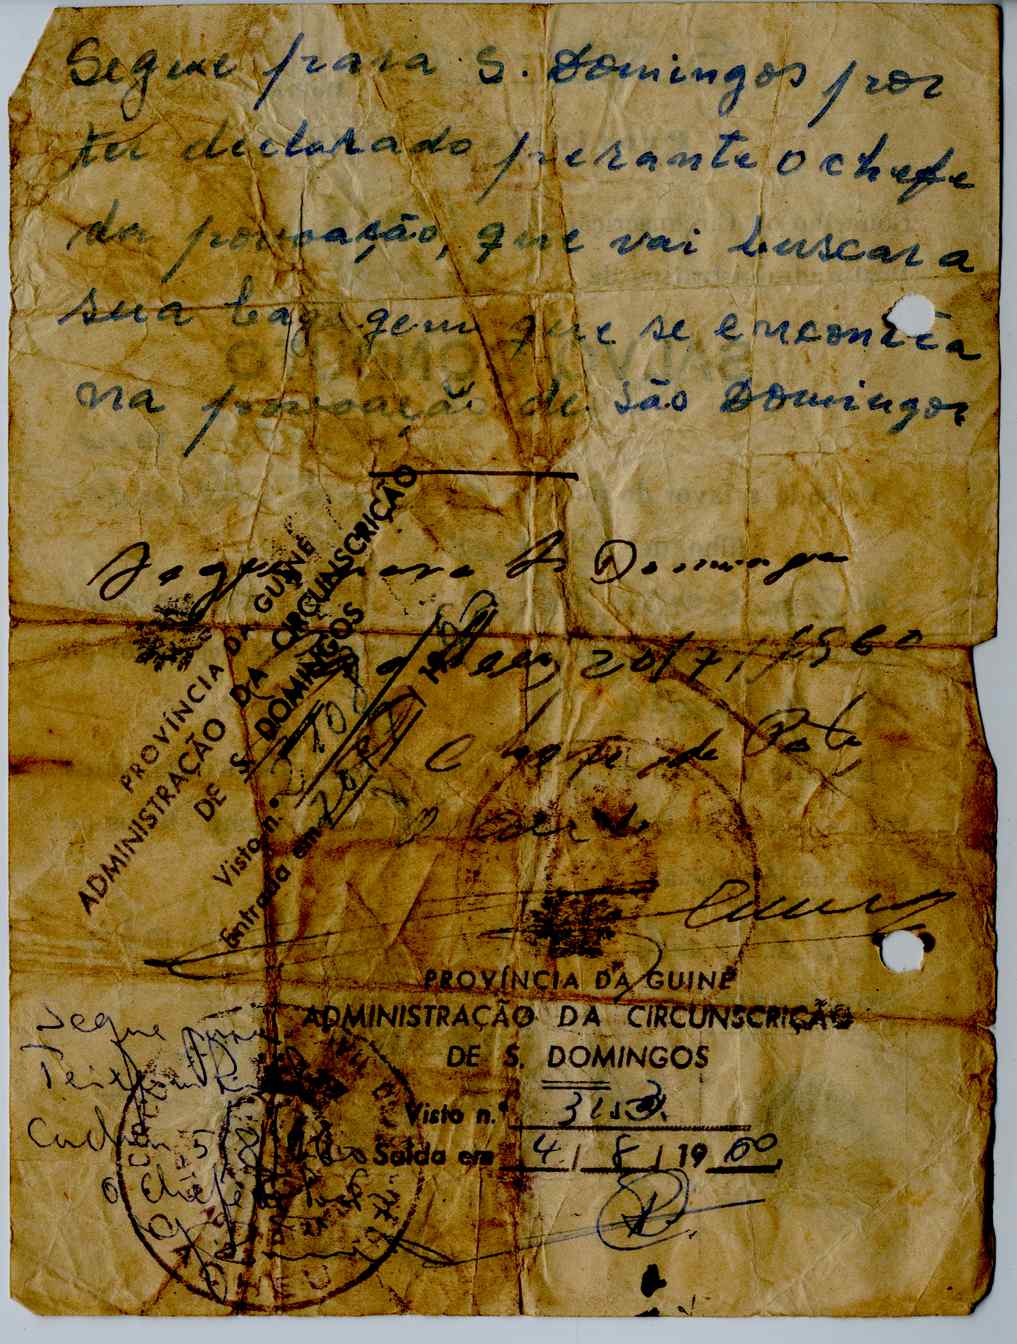 Segue para S. Domingos por
ter declarado perante o chefe
da povoação, que vai buscar a
sua bagagem que se encontra
na povoação de São Domingos
Segue para S. Domingos
20/7/1960
O chefe de Posto
PROVÍNCIA DA GUINÉ
ADMINISTRAÇÃO DA CIRCUNSCRIÇÃO
DE S. DOMINGOS
Visto n.º
Entrada em
PROVÍNCIA DA GUINÉ
ADMINISTRAÇÃO DA CIRCUNSCRIÇÃO
DE S. DOMINGOS
Visto n.º
Saída em 4 / 8 / 1960
Segue para
Cacheu 5
O Chefe